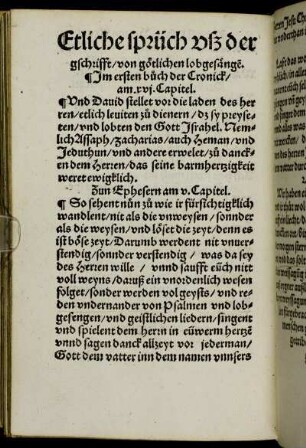 Etliche sprüch vß der
gschrifft/von götlichen lobgesängē.
¶ Jm ersten bůch der Cronick/
am.xvj.Capitel.
¶ Vnd Dauid stellet vor die laden des her
ren/etlich leuiten zů dienern/dz sy preyse-
ten/vnd lobten den Gott Jsrahel. Nem-
lich Assaph/Zacharias/auch Heman/vnd
Jeduthun/vnd andere erwelet/zů danck-
en dem Herren/das seine barmhertzigkeit
weret ewigklich.
Zun Ephesern am v.Capitel.
¶ So sehent nůn zů wie ir fürsichtigklich
wandlent/nit als die vnweysen/sonnder
als die weysen/vnd löset die zeyt/denn es
ist böse zeyt/Darumb werdent nit vnuer-
stendig/sonder verstendig/was da sey
des Herren wille/vnnd saufft eüch nitt
voll weyns/daruß ein vnordenlich wesen
folget/sonder werden vol geysts/vnd re-
den vndernander von Psalmen vnd lob-
gesengen/vnd geistlichen liedern/singent
vnd spielent dem herrn in eüwerm hertzē
vnnd sagen danck allzeyt vor jederman/
Gott dem vatter inn dem namen vnnsers